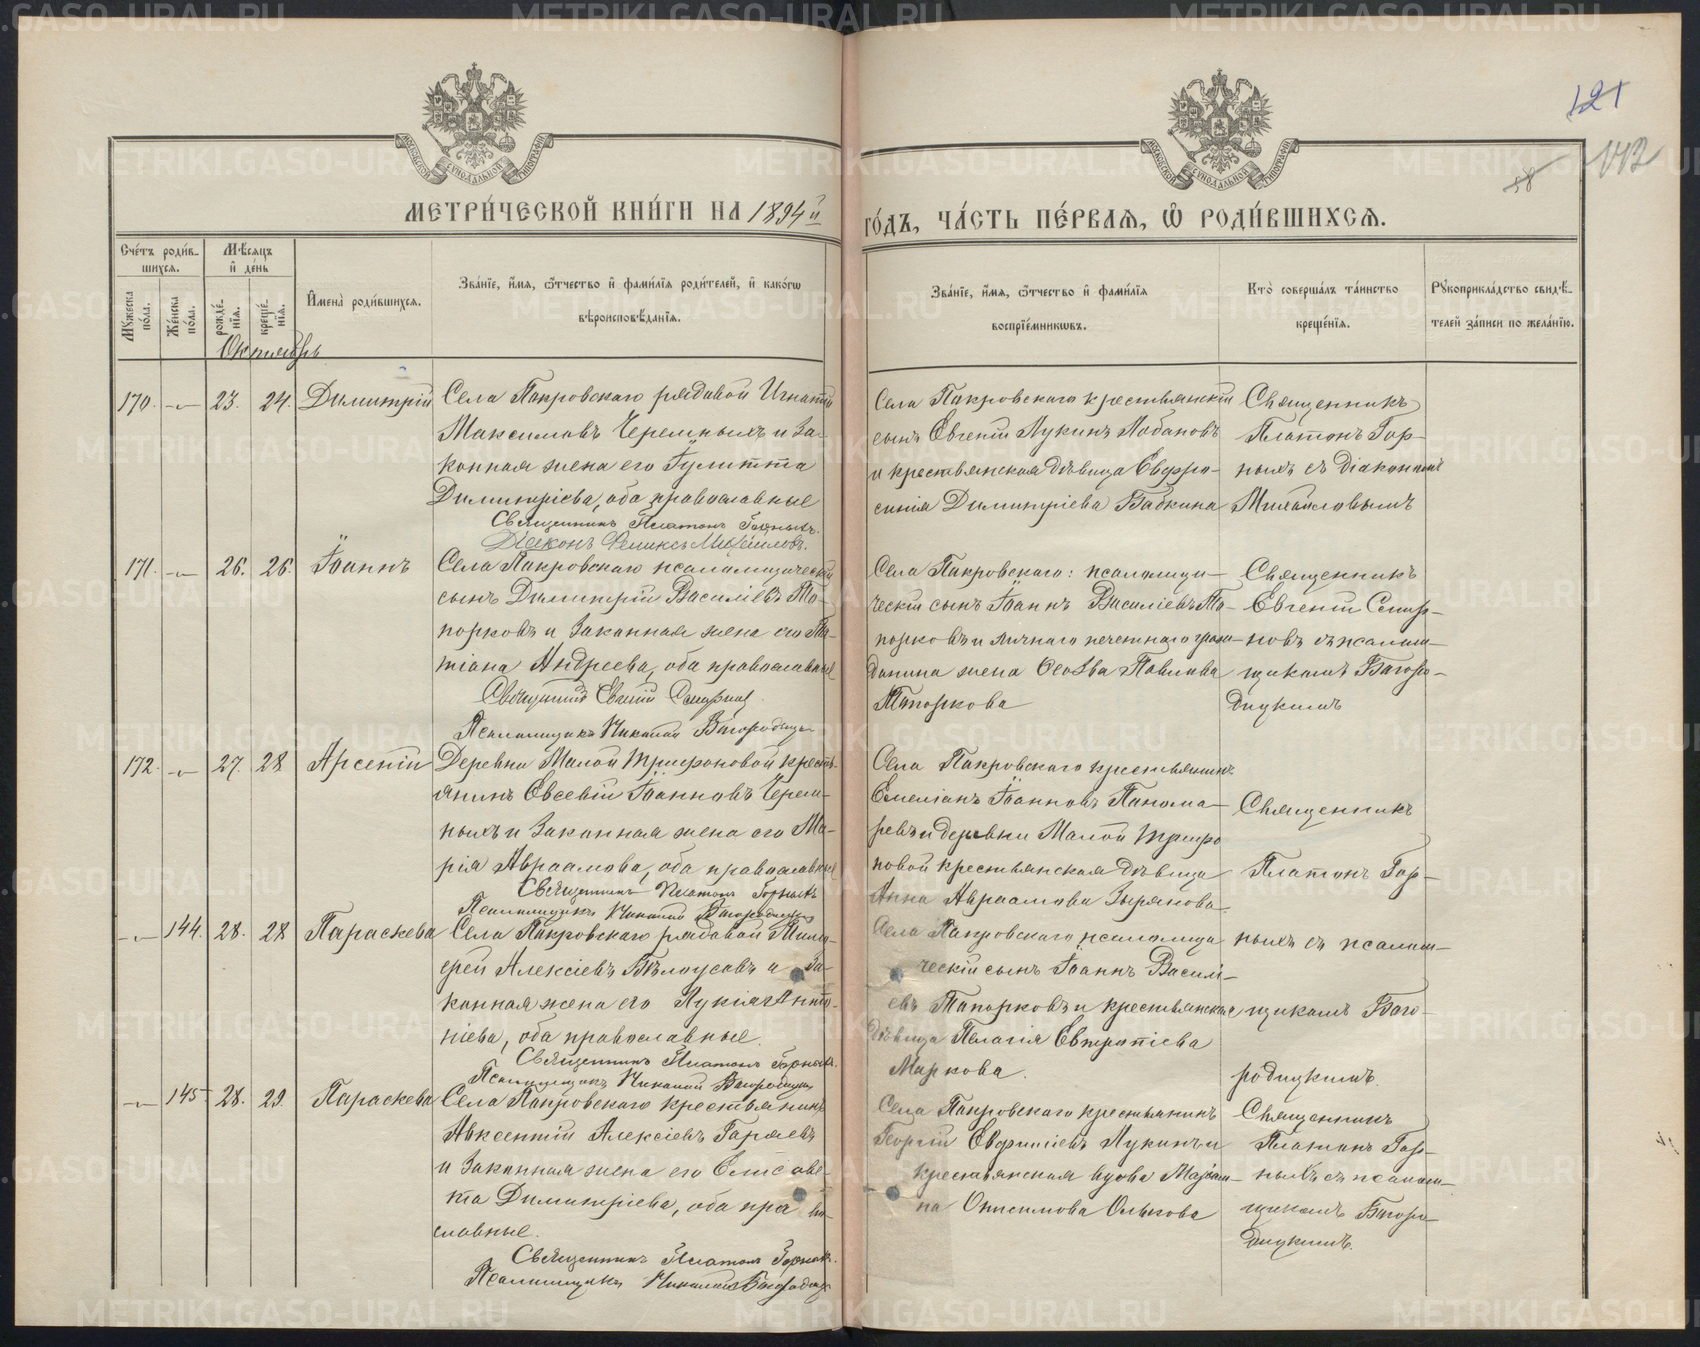 METRIKI.GASO-URAL.RU
121
142
58
МОСКОВСКОЙ СѴНОДАЛЬНОЙ ТИПОГРАФІИ
МОСКОВСКОЙ СѴНОДАЛЬНОЙ ТИПОГРАФІИ
МЕТРИ́ЧЕСКОЙ КНИ́ГИ НА 1894й
ГО́ДЪ, ЧА́СТЬ ПЕ́РВАѦ, Ѡ҆ РОДИ́ВШИХСѦ.
Сче́тъ роди́в-
шихсѧ.
Мѣ́сѧцъ
и҆ де́нь
Мꙋ́жеска по́ла.
Же́нска по́ла.
рожде́-
нїѧ.
креще́-
нїѧ.
И҆мена̀ роди́вшихсѧ.
Зва́нїе, и҆́мѧ, ѻ҆́тчество и҆ фами́лїѧ роди́телей, и҆ како́гѡ
вѣроисповѣ́данїѧ.
Зва́нїе, и҆́мѧ, ѻ҆́тчество и҆ фами́лїѧ
воспрїе́мникѡвъ.
Кто̀ соверша́лъ та́инство
креще́нїѧ.
Рꙋкоприкла́дство свидѣ́-
телей за́писи по жела́нїю.
Октябрь
170. 23. 24. Димитрій
Села Покровскаго рядовой Игнатій
Максимовъ Черемныхъ и за-
конная жена его Іулитта
Димитріева, оба православные
Священникъ Платонъ Горныхъ.
Діаконъ Феликсъ Михайловъ.
Села Покровскаго крестьянскій
сынъ Евгеній Лукинъ Лобановъ
и крестьянская дѣвица Евфро-
синія Димитріева Бабкина
Священникъ
Платонъ Гор-
ныхъ съ діакономъ
Михайловымъ
171. 26. 26. Іоаннъ
Села Покровскаго псаломщическій
сынъ Димитрій Василіевъ То-
порковъ и законная жена его Та-
тіана Андреева, оба православные
Священникъ Евгеній
Псаломщикъ Николай Богородицкій
Села Покровскаго: псаломщи-
ческій сынъ Іоаннъ Василіевъ То-
порковъ и личнаго почетнаго граж-
данина жена Павлова
Топоркова
Священникъ
Евгеній
новъ съ псалом-
щикомъ Богоро-
дицкимъ
172. 27. 28 Арсеній
Деревни Малой Трифоновой кресть-
янинъ Евсевій Іоанновъ Черем-
ныхъ и законная жена его Ма-
рія Авраамова, оба православные
Священникъ Платонъ Горныхъ
Псаломщикъ Николай Богородицкій
Села Покровскаго крестьянинъ
Емеліанъ Іоанновъ Понома-
ревъ и деревни Малой Трифо
новой крестьянская дѣвица
Анна Авраамова Зырянова
Священникъ
Платонъ Гор-
ныхъ съ псалом-
щикомъ Бого-
родицкимъ.
144. 28. 28 Параскева
Села Покровскаго рядовой Тимо-
ѳей Алексіевъ Бѣлоусовъ и за-
конная жена его Лукія Анто-
ніева, оба православные.
Священникъ Платонъ Горныхъ.
Псаломщикъ Николай Богородицкій
Села Покровскаго псаломщи
ческій сынъ Іоаннъ Василі-
евъ Топорковъ и крестьянская
дѣвица Пелагія Евтропіева
Маркова.
145 28. 29. Параскева
Села Покровскаго крестьянинъ
Авксентій Алексіевъ Горяевъ
и законная жена его Елисаве-
та Димитріева, оба право
славные.
Священникъ Платонъ Горныхъ.
Псаломщикъ Николай Богородицкій
Села Покровскаго крестьянинъ
Георгій Евфиміевъ Лукинъ и
крестьянская вдова Маріам-
на Онисимова Олькова
Священникъ
Платонъ Гор-
ныхъ съ псалом-
щикомъ Богоро-
дицкимъ.